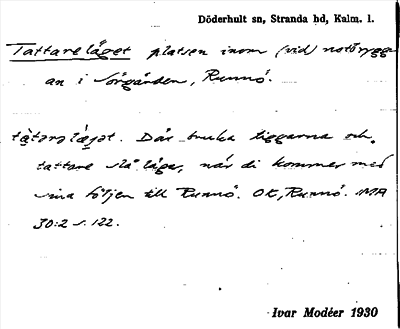 Döderhult sn, Stranda hd, Kalm. l.
Tattareläget platsen inom (vid) notörygg
an i Sörgården, Runnö.
tàtarəlägət. Där bruka tiggarna och
tattare slå läger, när di kommer med
sina följen till Runnö. OK, Runnö. IMA
30:2 s. 122.
Ivar Modéer 1930